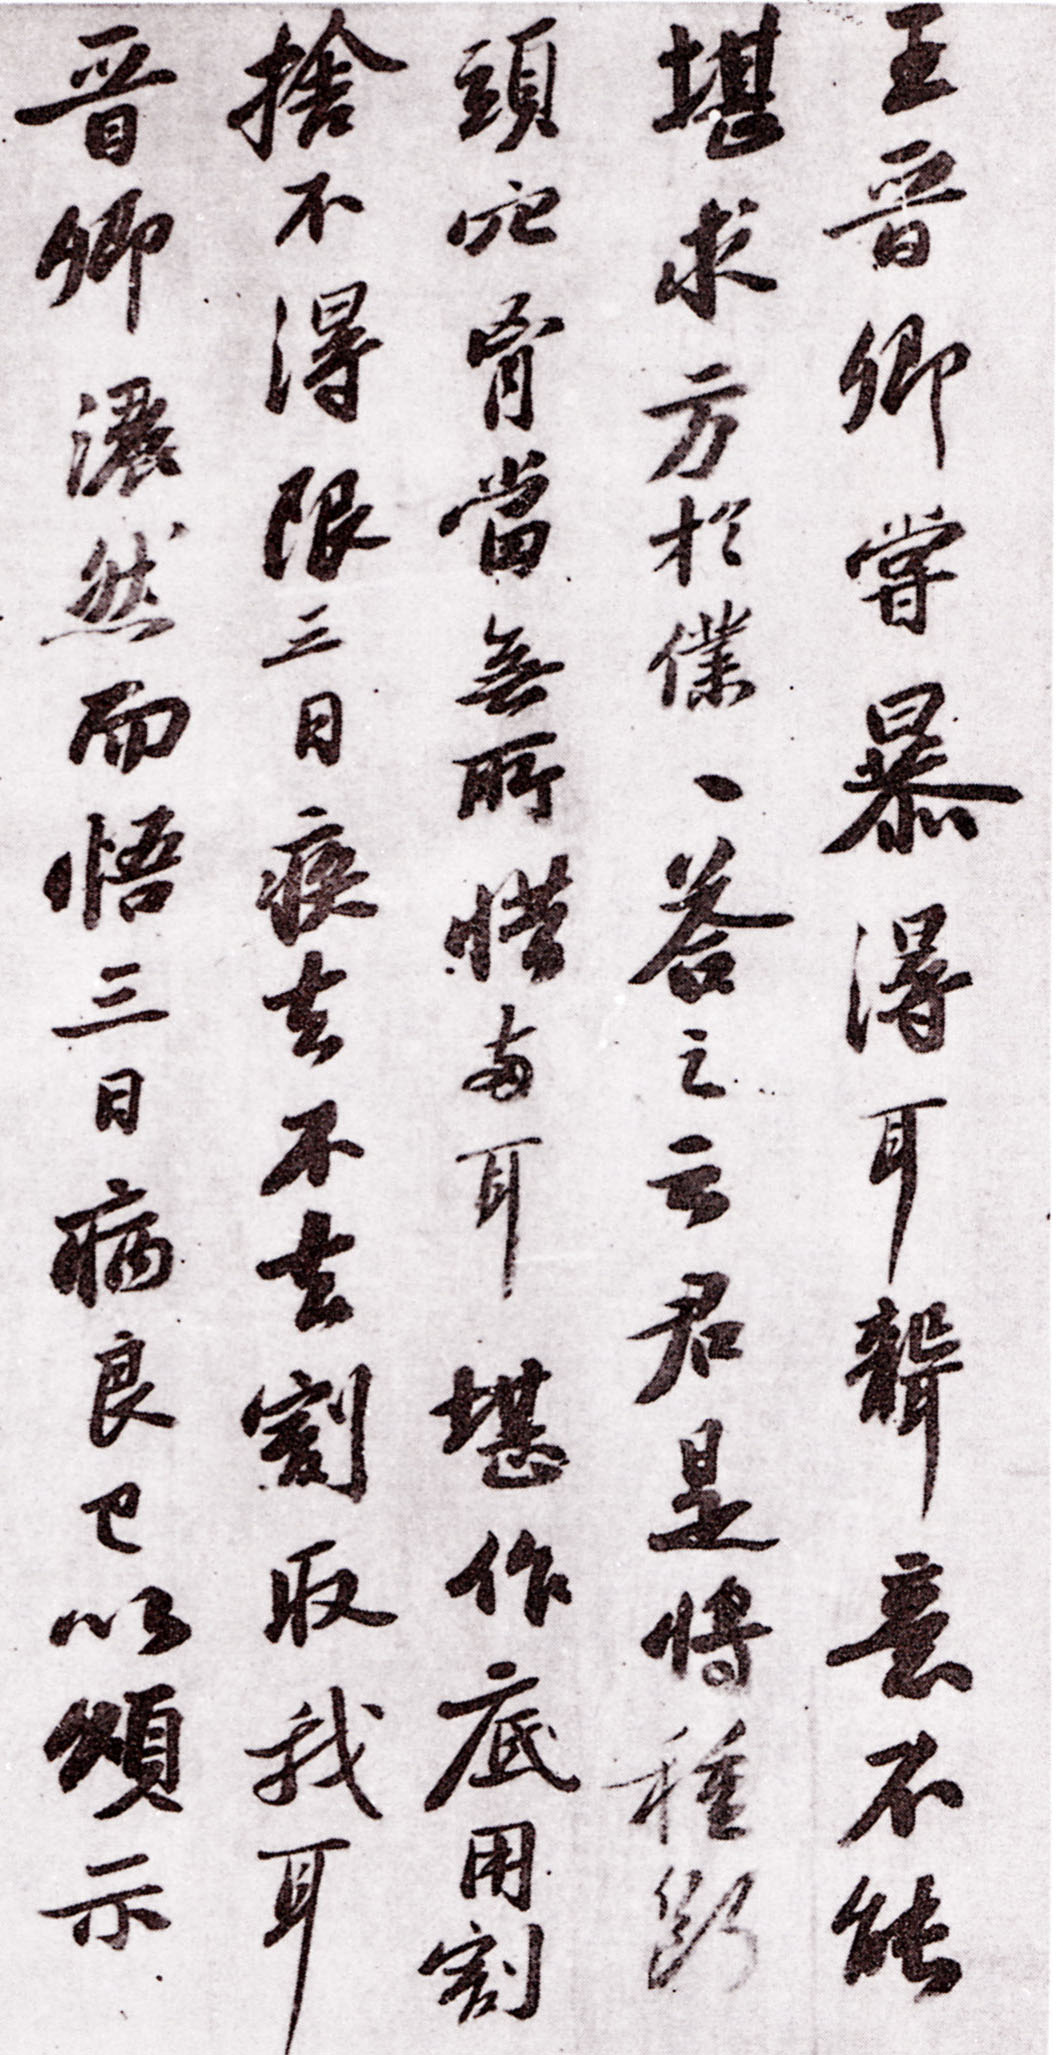 王晉卿嘗暴得耳聾意不能
堪求方於僕、答之云君是將種斷
頭穴胷當無所惜兩耳堪作底用割
捨不得限三日疾去不去割取我耳
晉卿灑然而悟三日病良已以頌示